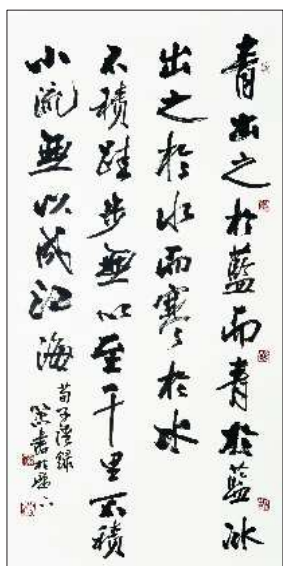 青出之於藍而青於藍冰
出之於水而寒於水
不積跬步無以至千里不積
小流無以成江海
荀子語錄
書於